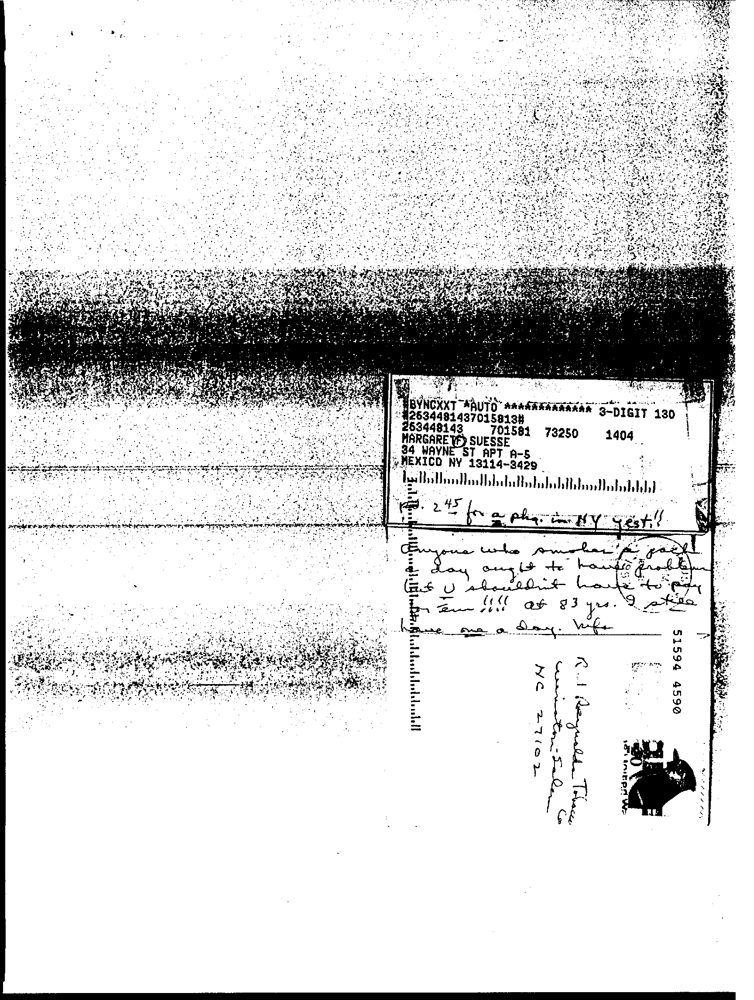 BYNCXXT *AUTO ************* 3-DIGIT 130
#2634481437015813#
263448143 701581 73250 1404
MARGARET F SUESSE
34 WAYNE ST APT A-5
MEXICO NY 13114-3429
2 45 for a pkg. in NY yest!!
Anyone who smokes a pack
a day ought to have problem
but U shouldn't have to pay
for em !!!! at 83 yrs. I still
have one a day.
R.J Reynolds Tobacco Co
Winston-Salem
NC 27102
51594 4590